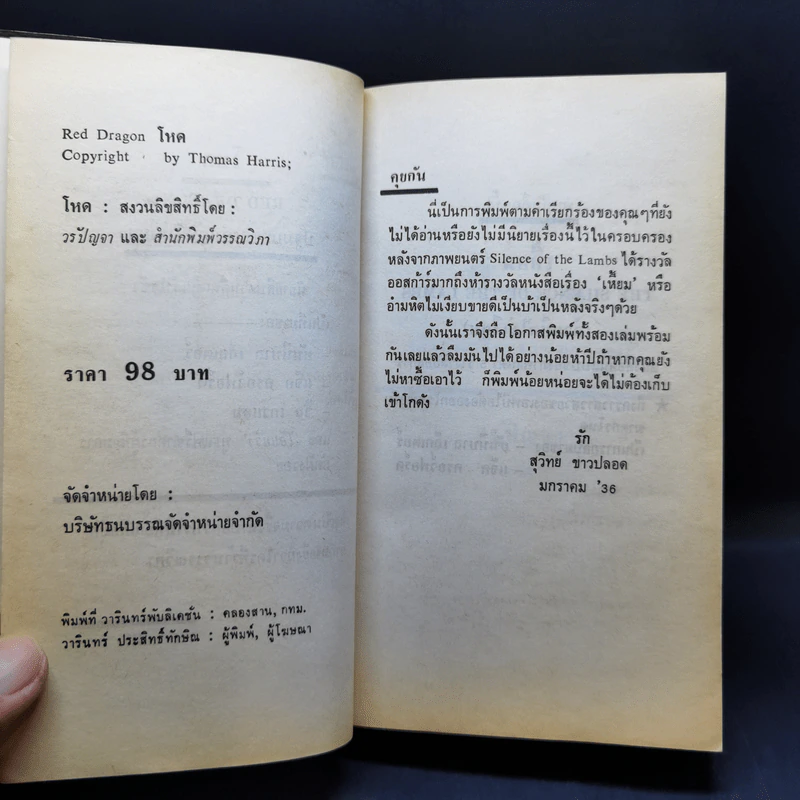 Red Dragon โหด
Copyright by Thomas Harris;
โหด : สงวนลิขสิทธิ์โดย :
วรปัญจา และ สำนักพิมพ์วรรณวิภา
ราคา 98 บาท
จัดจำหน่ายโดย :
บริษัทธนบรรณจัดจำหน่ายจำกัด
พิมพ์ที่ วารินทร์พับลิเคชั่น : คลองสาน, กทม.
วารินทร์ ประสิทธิ์ทักษิณ : ผู้พิมพ์, ผู้โฆษณา
คุยกัน
นี่เป็นการพิมพ์ตามคำเรียกร้องของคุณๆที่ยัง
ไม่ได้อ่านหรือยังไม่มีนิยายเรื่องนี้ไว้ในครอบครอง
หลังจากภาพยนตร์ Silence of the Lambs ได้รางวัล
ออสก้าร์มากถึงห้ารางวัลหนังสือเรื่อง 'เหี้ยม' หรือ
อำมหิตไม่เงียบขายดีเป็นบ้าเป็นหลังจริงๆด้วย
ดังนั้นเราจึงถือโอกาสพิมพ์ทั้งสองเล่มพร้อม
กันเลยแล้วลืมมันไปได้อย่างน้อยห้าปีถ้าหากคุณยัง
ไม่หาซื้อเอาไว้ ก็พิมพ์น้อยหน่อยจะได้ไม่ต้องเก็บ
เข้าโกดัง
รัก
สุวิทย์ ขาวปลอด
มกราคม '36